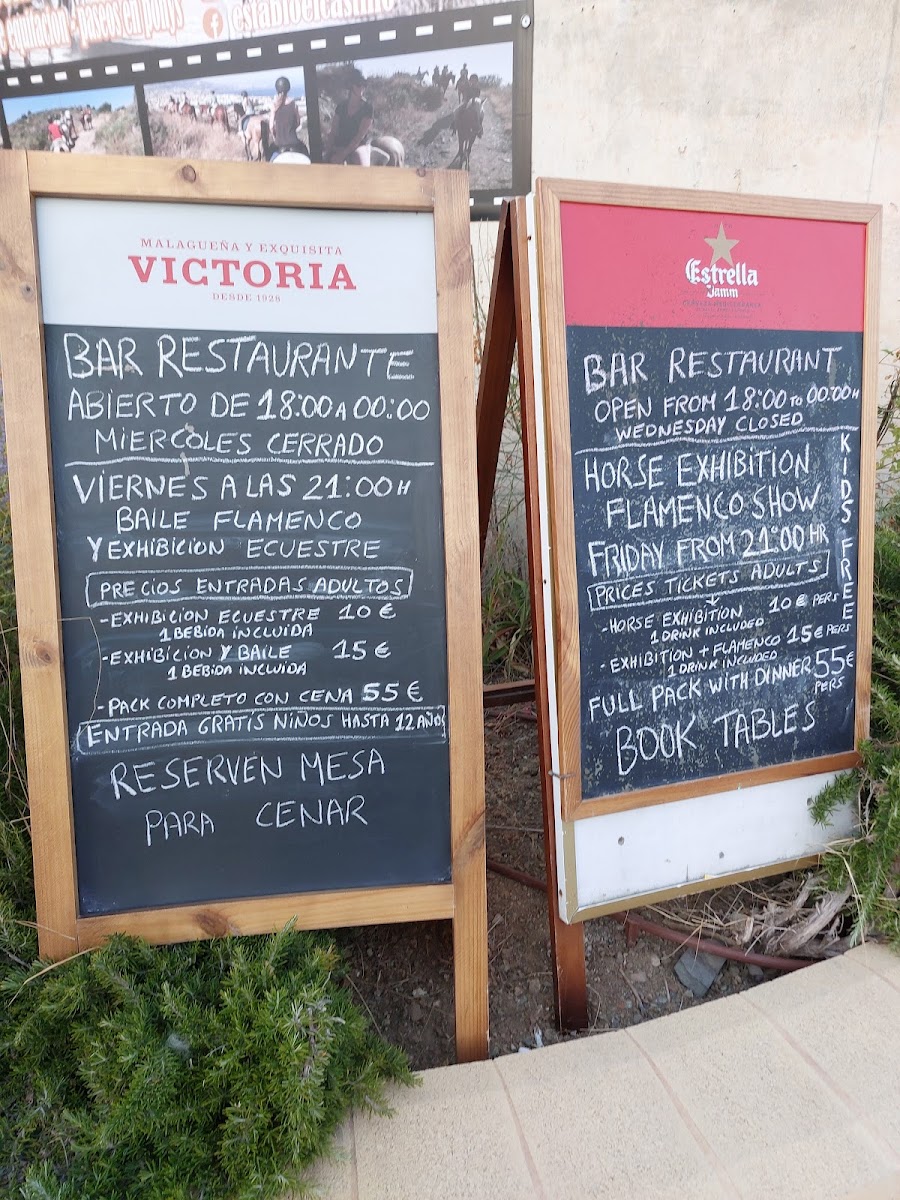 equitación - paseos en ponys
establoelcastillo
MALAGUEÑA Y EXQUISITA
VICTORIA
DESDE 1928
BAR RESTAURANTE
ABIERTO DE 18:00 A 00:00
MIERCOLES CERRADO
VIERNES A LAS 21:00 H
BAILE FLAMENCO
Y EXHIBICION ECUESTRE
PRECIOS ENTRADAS ADULTOS
-EXHIBICION ECUESTRE 10 €
1 BEBIDA INCLUIDA
-EXHIBICION Y BAILE 15 €
1 BEBIDA INCLUIDA
-PACK COMPLETO CON CENA 55 €
ENTRADA GRATIS NIÑOS HASTA 12 AÑOS
RESERVEN MESA
PARA CENAR
Estrella
Damm
BAR RESTAURANT
OPEN FROM 18:00 TO 00:00 H
WEDNESDAY CLOSED
HORSE EXHIBITION
FLAMENCO SHOW
FRIDAY FROM 21:00 HR
PRICES TICKETS ADULTS
-HORSE EXHIBITION 10 € PERS
1 DRINK INCLUDED
-EXHIBITION + FLAMENCO 15 € PERS
1 DRINK INCLUDED
FULL PACK WITH DINNER 55 €
PERS
BOOK TABLES
KIDS FREE